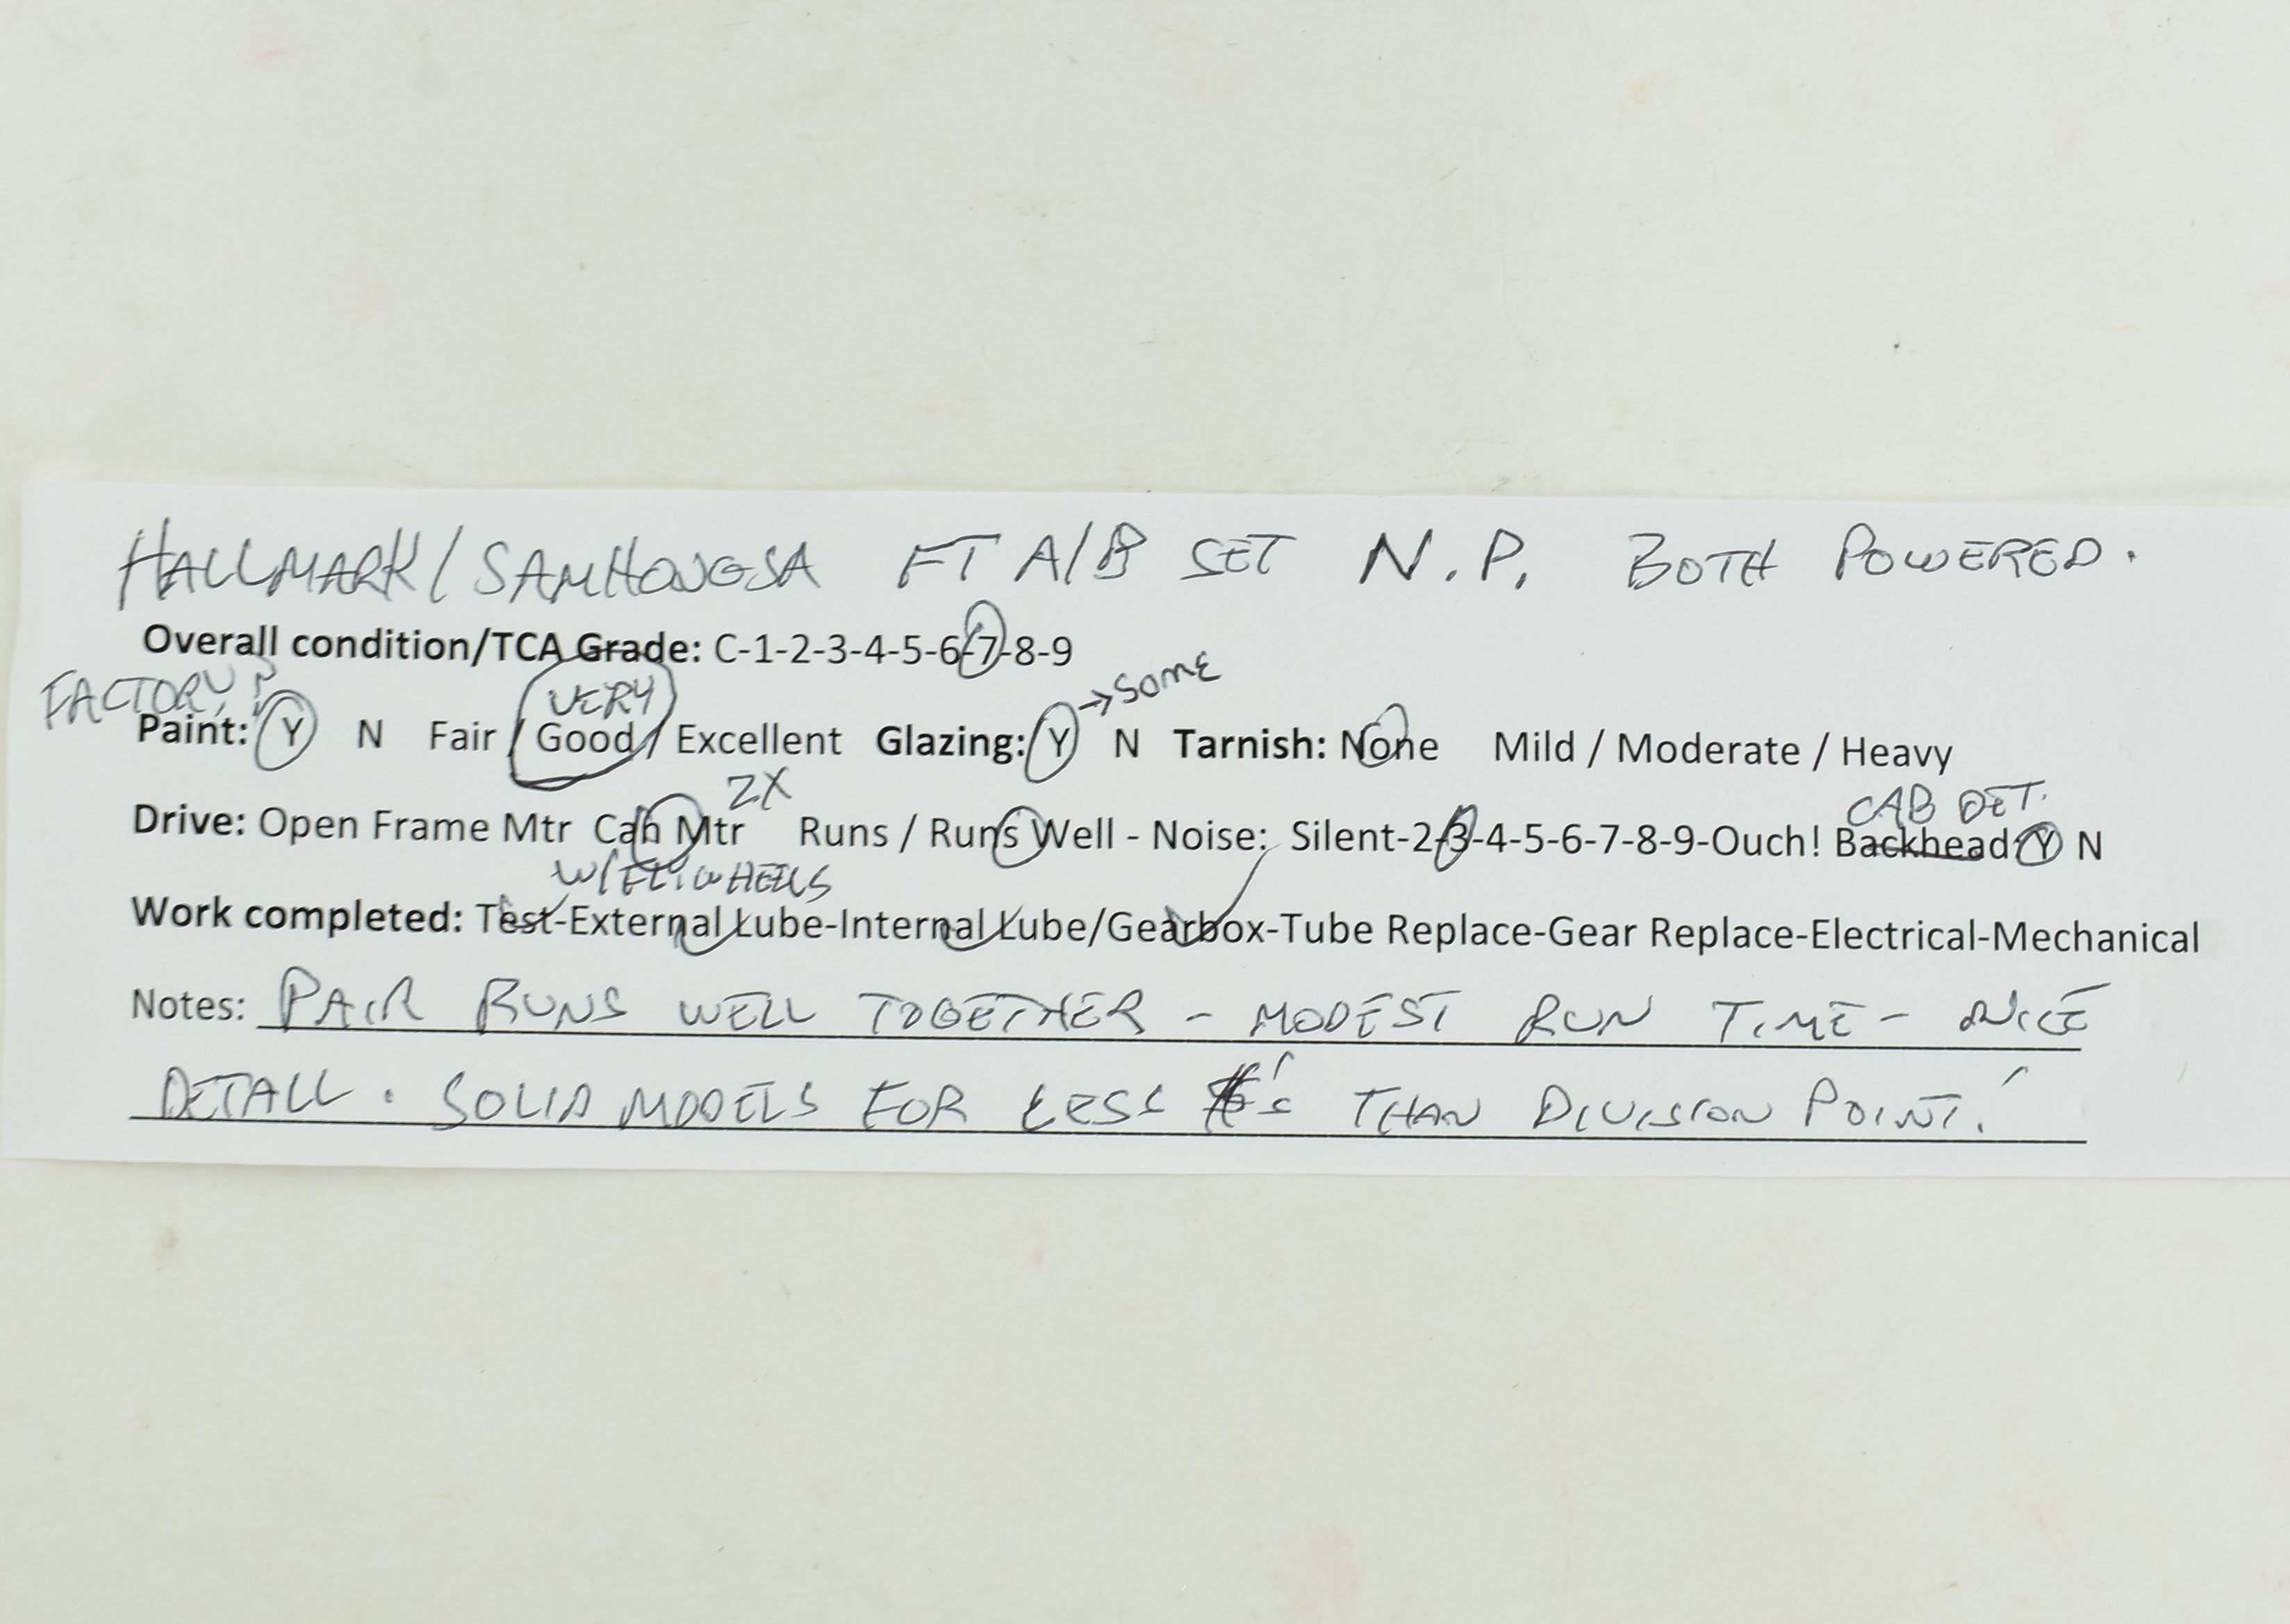 HALLMARK/SAMHONGSA FT A/B SET N.P. BOTH POWERED.
Overall condition/TCA Grade: C-1-2-3-4-5-6-7-8-9
FACTORY?
VERY
→ SOME
Paint: Y N Fair / Good / Excellent Glazing: Y N Tarnish: None Mild / Moderate / Heavy
2X
CAB DET.
Drive: Open Frame Mtr Can Mtr Runs / Runs Well - Noise: Silent-2-3-4-5-6-7-8-9-Ouch! Backhead: Y N
W/FLYWHEELS
Work completed: Test-External Lube-Internal Lube/Gearbox-Tube Replace-Gear Replace-Electrical-Mechanical
Notes: PAIR RUNS WELL TOGETHER - MODEST RUN TIME - NICE
DETAIL. SOLID MODELS FOR LESS $'s THAN DIVISION POINT!